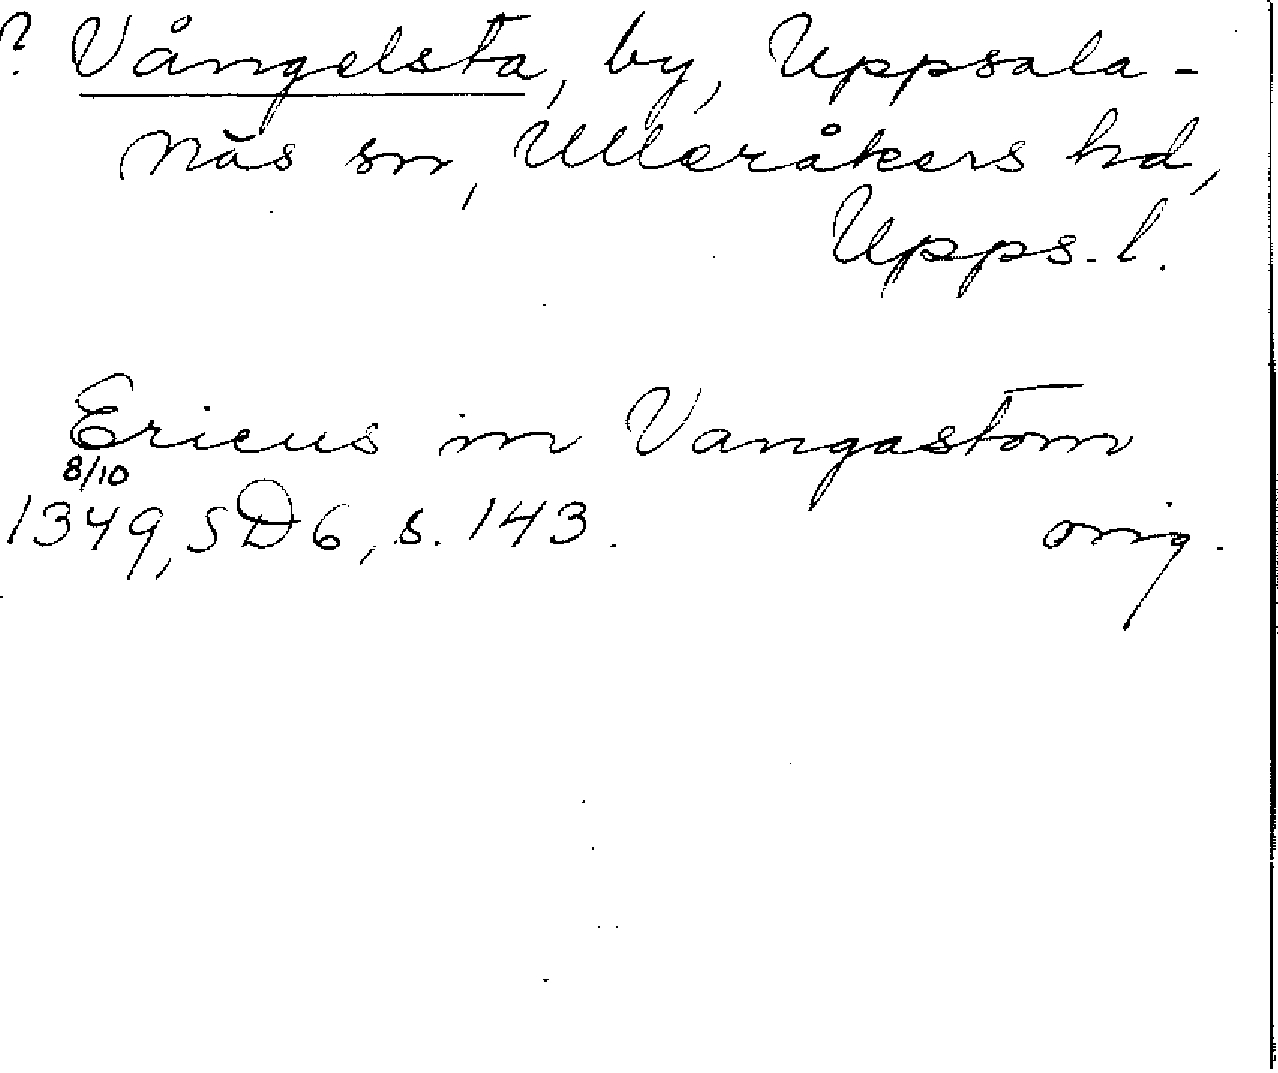 ? Vångelsta, by, Uppsala-
Näs sn, Ulleråkers hd,
Upps. l.
Ericus in Vangastom
8/10
1349, SD 6, s. 143. orig.